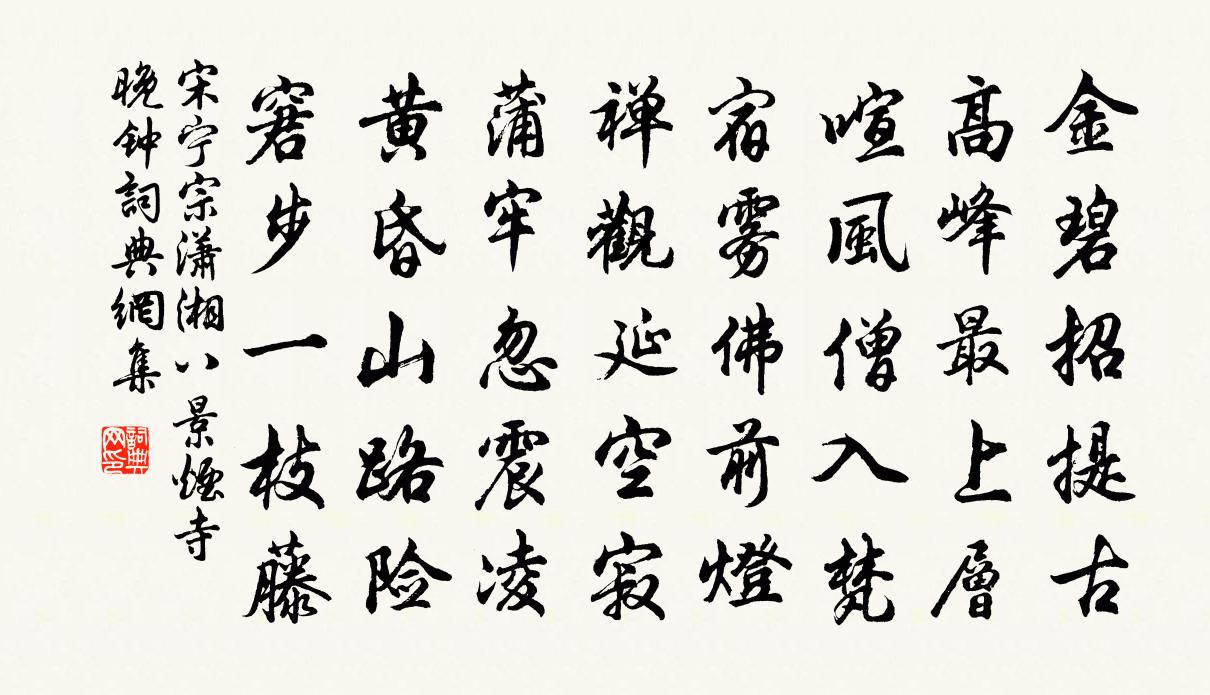 金碧招提古
髙峰最上層
喧風僧入梵
宿雾佛前燈
禅觀延空寂
蒲牢忽震凌
黄昏山路险
窘步一枝藤
宋宁宗瀟湘八景煙寺
晚钟詞典網集
詞典网印